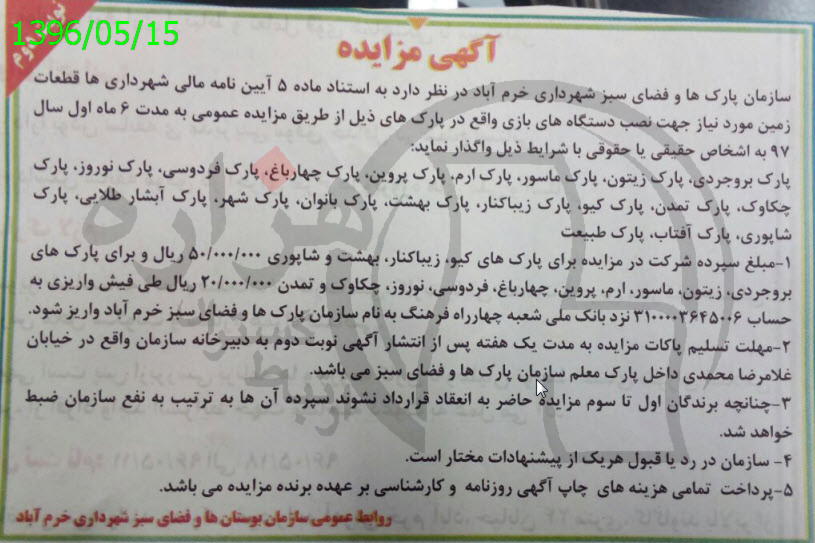 1396/05/15
نوبت دوم
آگهی مزایده
سازمان پارک ها و فضای سبز شهرداری خرم آباد در نظر دارد به استناد ماده ۵ آیین نامه مالی شهرداری ها قطعات
زمین مورد نیاز جهت نصب دستگاه های بازی واقع در پارک های ذیل از طریق مزایده عمومی به مدت ۶ ماه اول سال
۹۷ به اشخاص حقیقی یا حقوقی با شرایط ذیل واگذار نماید:
پارک بروجردی، پارک زیتون، پارک ماسور، پارک ارم، پارک پروین، پارک چهارباغ، پارک فردوسی، پارک نوروز، پارک
چکاوک، پارک تمدن، پارک کیو، پارک زیباکنار، پارک بهشت، پارک بانوان، پارک شهر، پارک آبشار طلایی، پارک
شاپوری، پارک آفتاب، پارک طبیعت
۱-مبلغ سپرده شرکت در مزایده برای پارک های کیو، زیباکنار، بهشت و شاپوری ۵۰/۰۰۰/۰۰۰ ریال و برای پارک های
بروجردی، زیتون، ماسور، ارم، پروین، چهارباغ، فردوسی، نوروز، چکاوک و تمدن ۲۰/۰۰۰/۰۰۰ ریال طی فیش واریزی به
حساب ۳۱۰۰۰۰۳۶۴۵۰۰۶ نزد بانک ملی شعبه چهارراه فرهنگ به نام سازمان پارک ها و فضای سبز خرم آباد واریز شود.
۲-مهلت تسلیم پاکات مزایده به مدت یک هفته پس از انتشار آگهی نوبت دوم به دبیرخانه سازمان واقع در خیابان
غلامرضا محمدی داخل پارک معلم سازمان پارک ها و فضای سبز می باشد.
۳-چنانچه برندگان اول تا سوم مزایده حاضر به انعقاد قرارداد نشوند سپرده آن ها به ترتیب به نفع سازمان ضبط
خواهد شد.
۴- سازمان در رد یا قبول هریک از پیشنهادات مختار است.
۵-پرداخت تمامی هزینه های چاپ آگهی روزنامه و کارشناسی بر عهده برنده مزایده می باشد.
روابط عمومی سازمان بوستان ها و فضای سبز شهرداری خرم آباد
هزاره